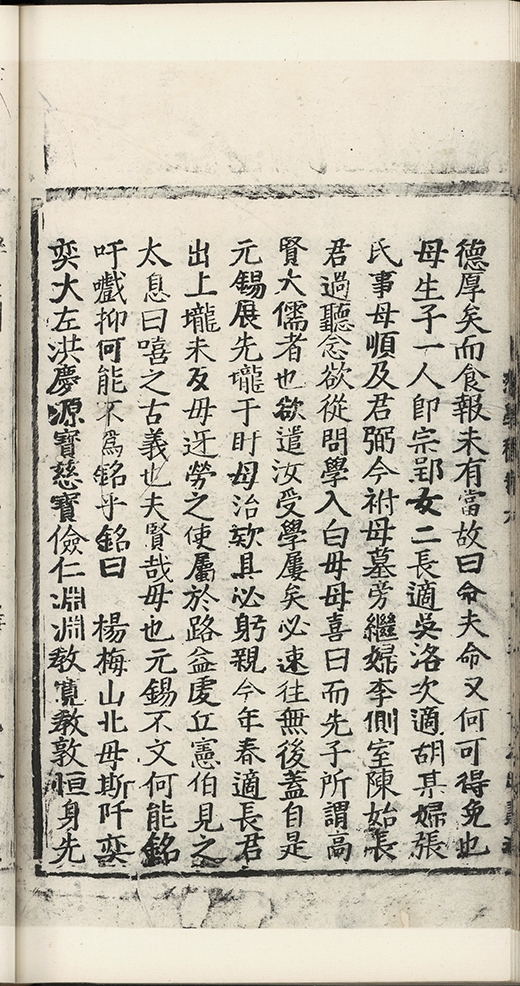 德厚矣而食報未有當故曰命夫命又何可得免也
母生子一人即宗郢女二長適吳洛次適胡某婦張
氏事母順及君弼今祔母墓旁繼婦李側室陳始長
君過聽念欲從問學入白母母喜曰而先子所謂高
賢大儒者也欲遣汝受學屢矣必速往無後蓋自是
元錫展先壠于旴母治欵具必躬親今年春適長君
出上壠未反母迓勞之使屬於路益虔丘憲伯見之
太息曰嘻之古義也夫賢哉母也元錫不文何能銘
吁嚱抑何能不爲銘乎銘曰　楊梅山北母斯阡奕
奕大左洪慶源寶慈寶儉仁淵淵教寬教敦恒身先